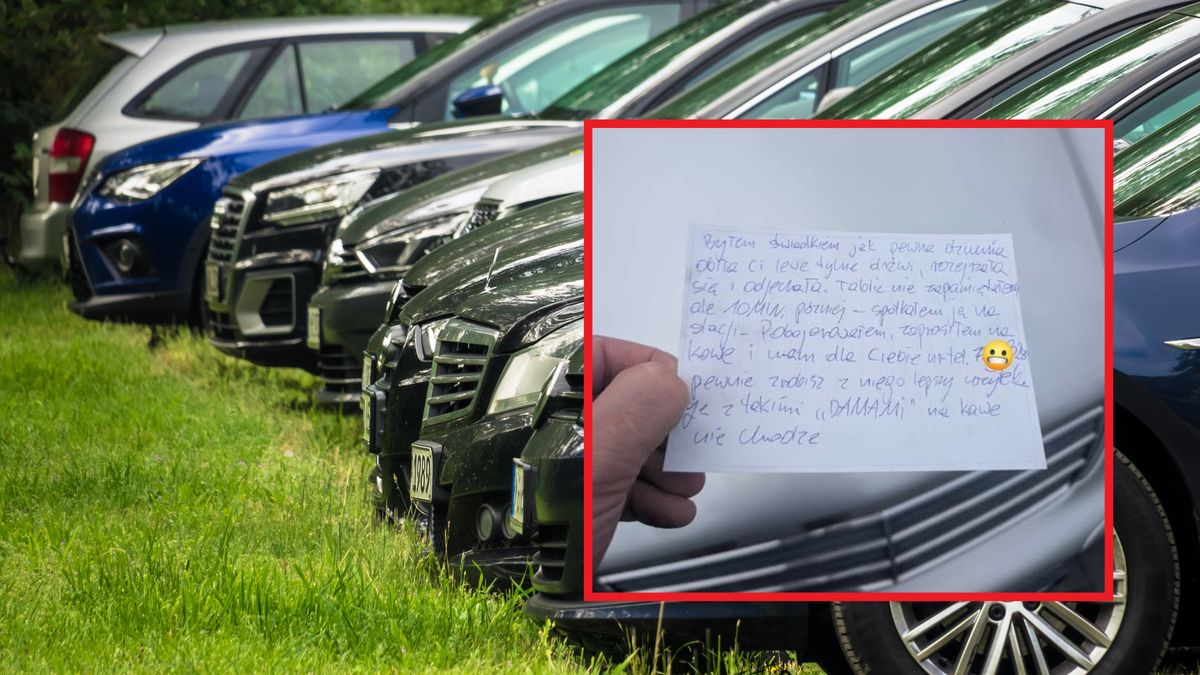 Byłem świadkiem jak pewna dziunia
obiła Ci lewe tylne drzwi, rozejrzała
się i odjechała. Tablic nie zapamiętałem
ale 10 MIN. pózniej - spotkałem ją na
stacji - Pobajerowałem, zaprosiłem na
kawe i mam dla Ciebie nr tel. 7
pewnie zrobisz z niego lepszy użytek
Ja z takimi „DAMAMI" na kawe
nie chodze
1989